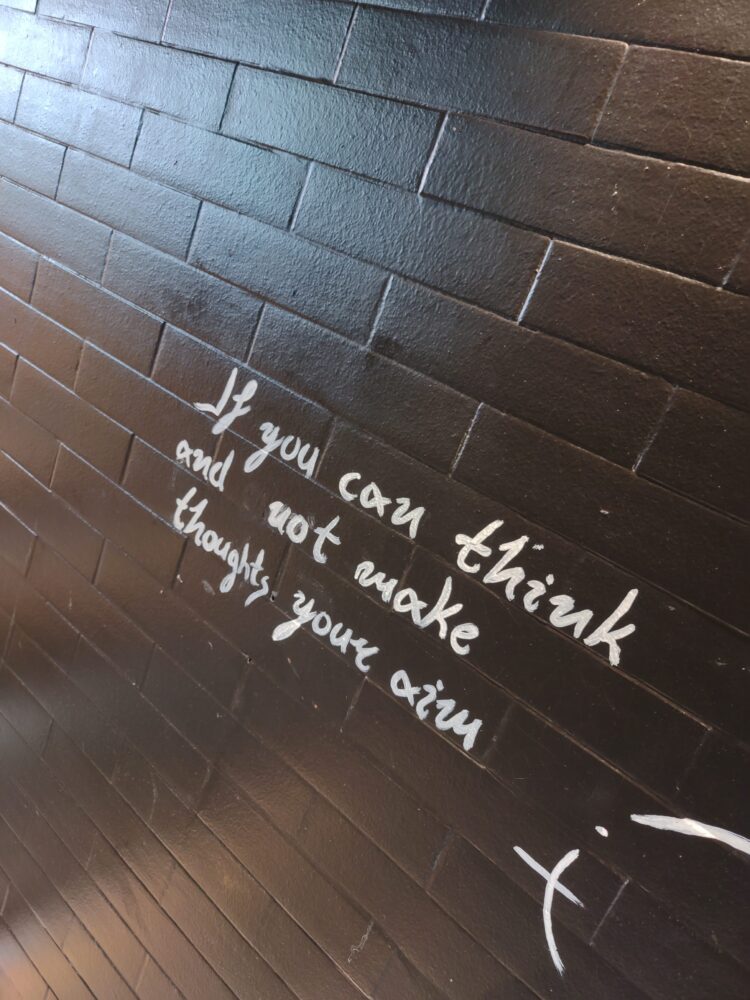 If you can think
and not make
thoughts your aim